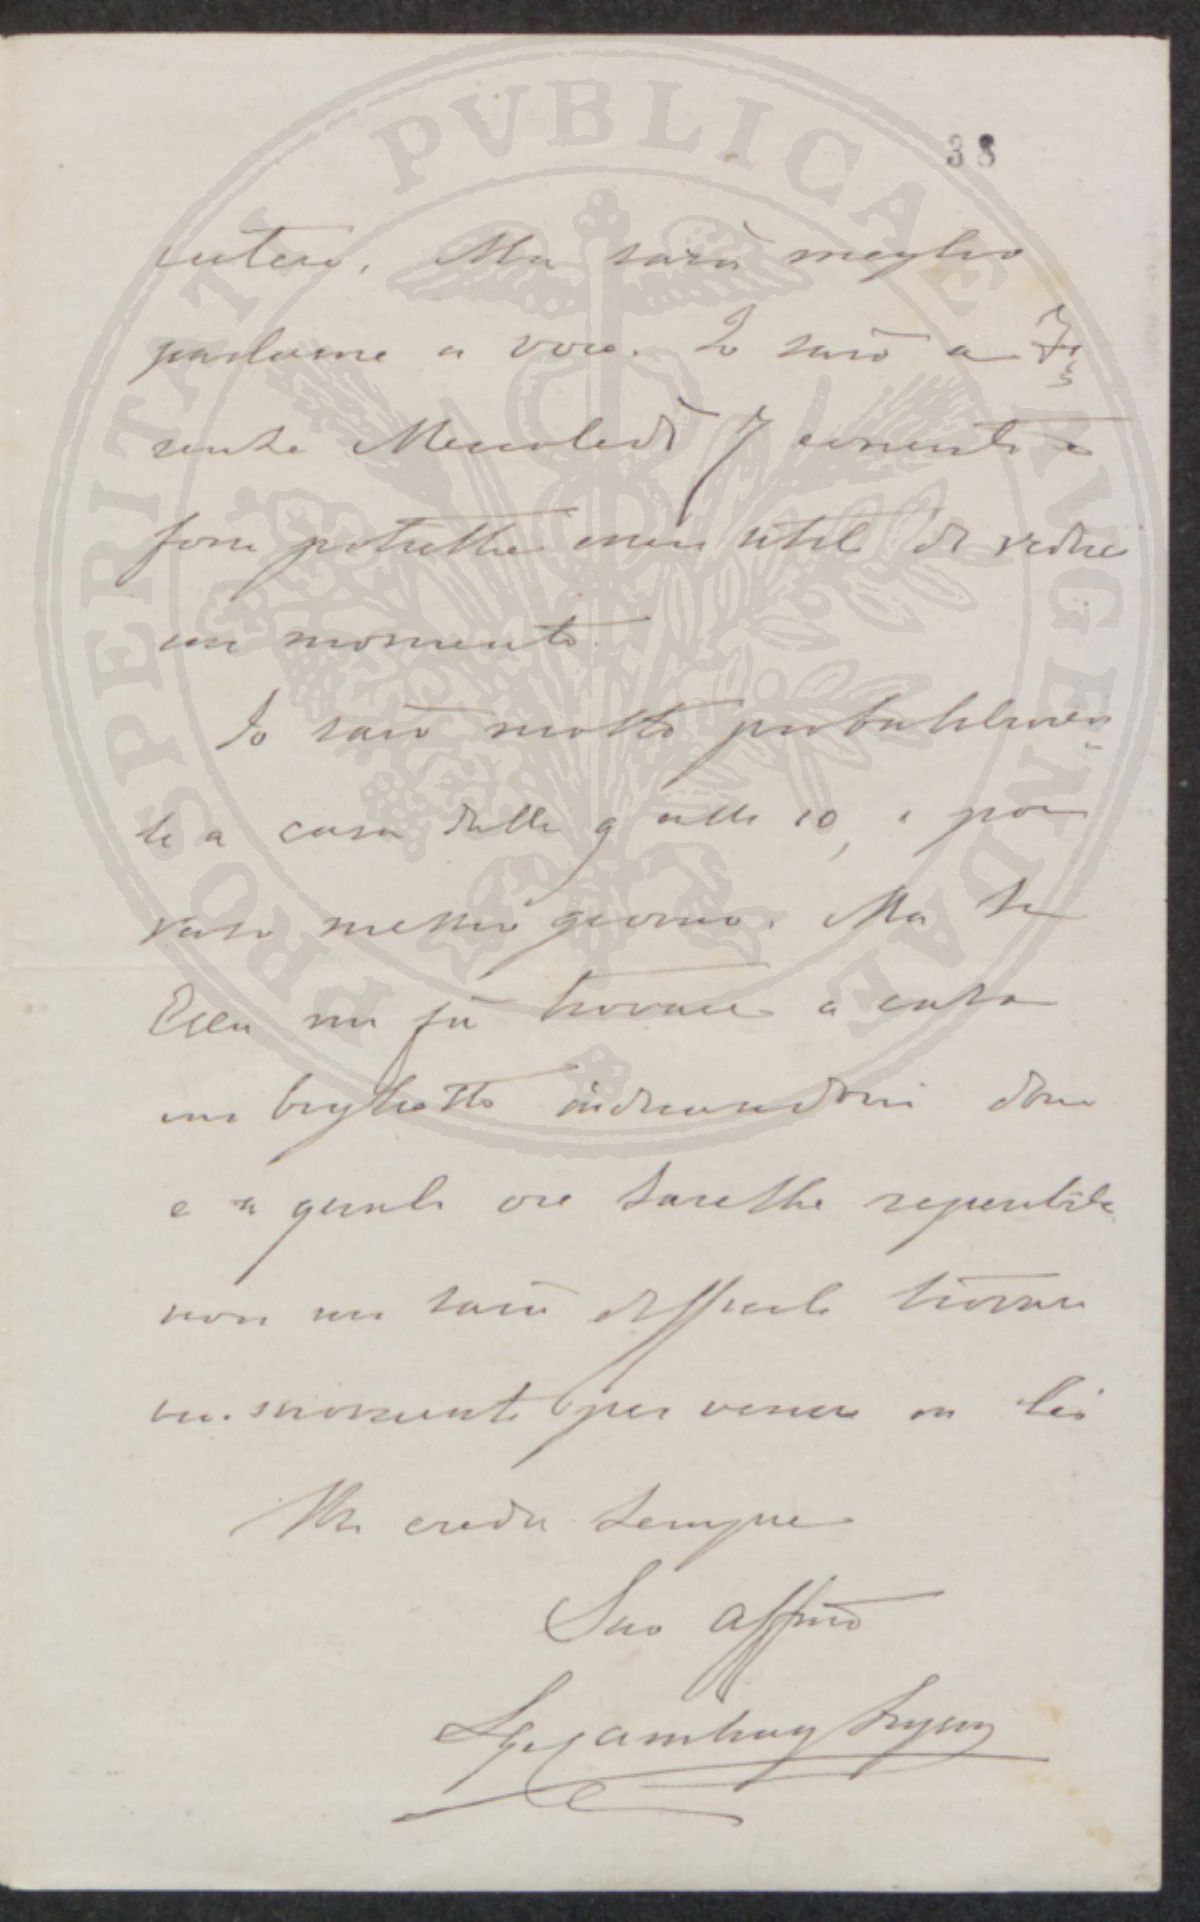 38
cutere. Ma sarà meglio
parlarne a voce. Io sarò a Fi
renze Mercoledì 7 corrente e
forse potrebbe essere utile di vederci
un momento.
Io sarò molto probabilmen
te a casa dalle 9 alle 10, e poi
verso mezzo giorno. Ma se
Ella mi fa trovare a casa
un biglietto indicandomi dove
e a quale ore sarebbe reperibile
non mi sarà difficile trovare
un momento per venire da lei
Mi creda sempre
Suo affmo
PVBLICAE AVGENDAE PROSPERITATI